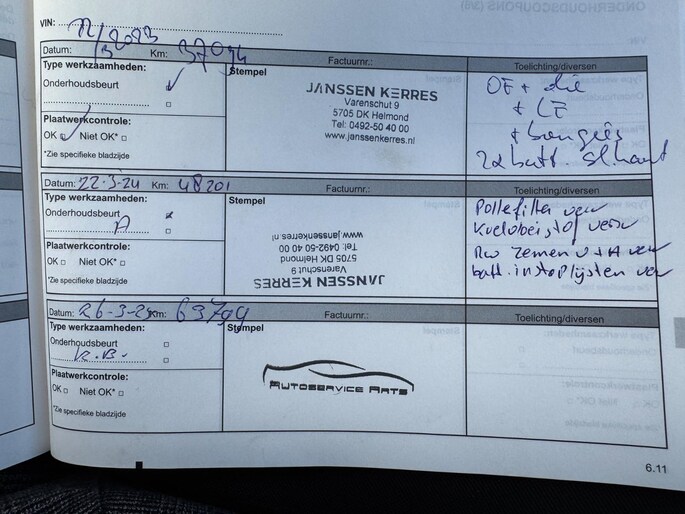 VIN:
Datum: 12/2023 Km: 37094 Factuurnr.: Toelichting/diversen
Type werkzaamheden:
Onderhoudsbeurt
Plaatwerkcontrole:
OK Niet OK*
*Zie specifieke bladzijde
Stempel
JANSSEN KERRES
Varenschut 9
5705 DK Helmond
Tel: 0492-50 40 00
www.janssenkerres.nl
OF + die
+ LF
+ bougies
2x batt.
Datum: 22-3-24 Km: 48201 Factuurnr.: Toelichting/diversen
Type werkzaamheden:
Onderhoudsbeurt
A
Plaatwerkcontrole:
OK Niet OK*
*Zie specifieke bladzijde
Stempel
JANSSEN KERRES
Varenschut 9
5705 DK Helmond
Tel: 0492-50 40 00
www.janssenkerres.nl
Pollefilter verv
verv
Rw Remen V+A verv
batt.
Datum: 26-3-25 Km: 63794 Factuurnr.: Toelichting/diversen
Type werkzaamheden:
Onderhoudsbeurt
K.B.
Plaatwerkcontrole:
OK Niet OK*
*Zie specifieke bladzijde
Stempel
AUTOSERVICE ARTS
6.11